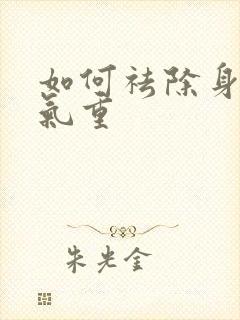 如何祛除身
氣重
朱光金